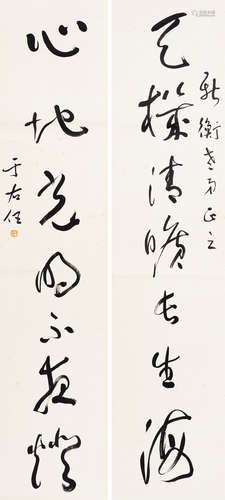 天機清曠長生海
新衡老弟正之
心地光明不夜燈
于右任